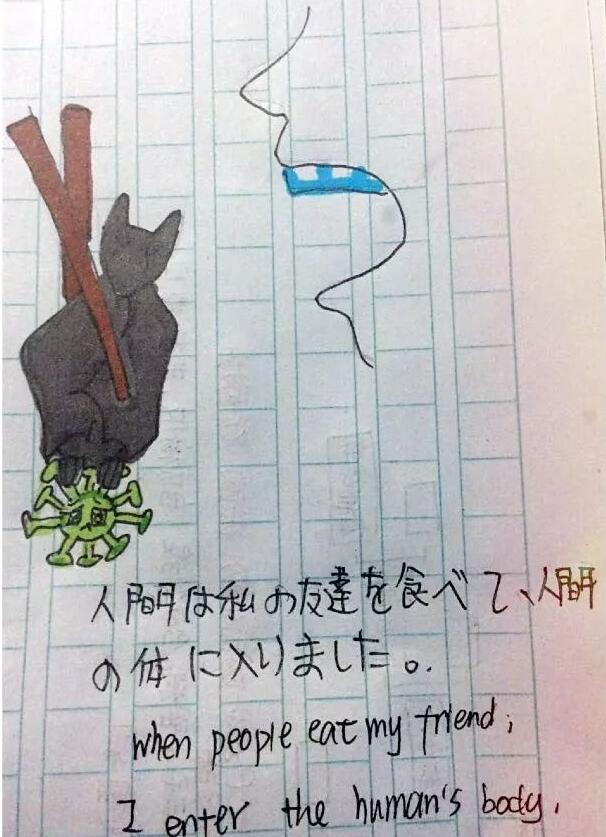 人間は私の友達を食べて、人間
の体に入りました。
when people eat my friend,
I enter the human's body.